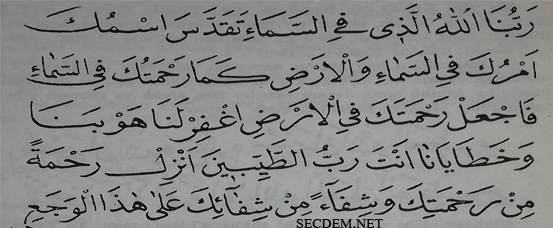 رَبُّنَا اللّٰهُ الَّذِى فِى السَّمَاءِ تَقَدَّسَ اسْمُكَ
اَمْرُكَ فِى السَّمَاءِ وَالْاَرْضِ كَمَا رَحْمَتُكَ فِى السَّمَاءِ
فَاجْعَلْ رَحْمَتَكَ فِى الْاَرْضِ اِغْفِرْ لَنَا هَوْبَنَا
وَخَطَايَانَا اَنْتَ رَبُّ الطَّيِّبِينَ اَنْزِلْ رَحْمَةً
مِنْ رَحْمَتِكَ وَشِفَاءً مِنْ شِفَائِكَ عَلٰى هٰذَا الْوَجَعِ
SECDEM.NET